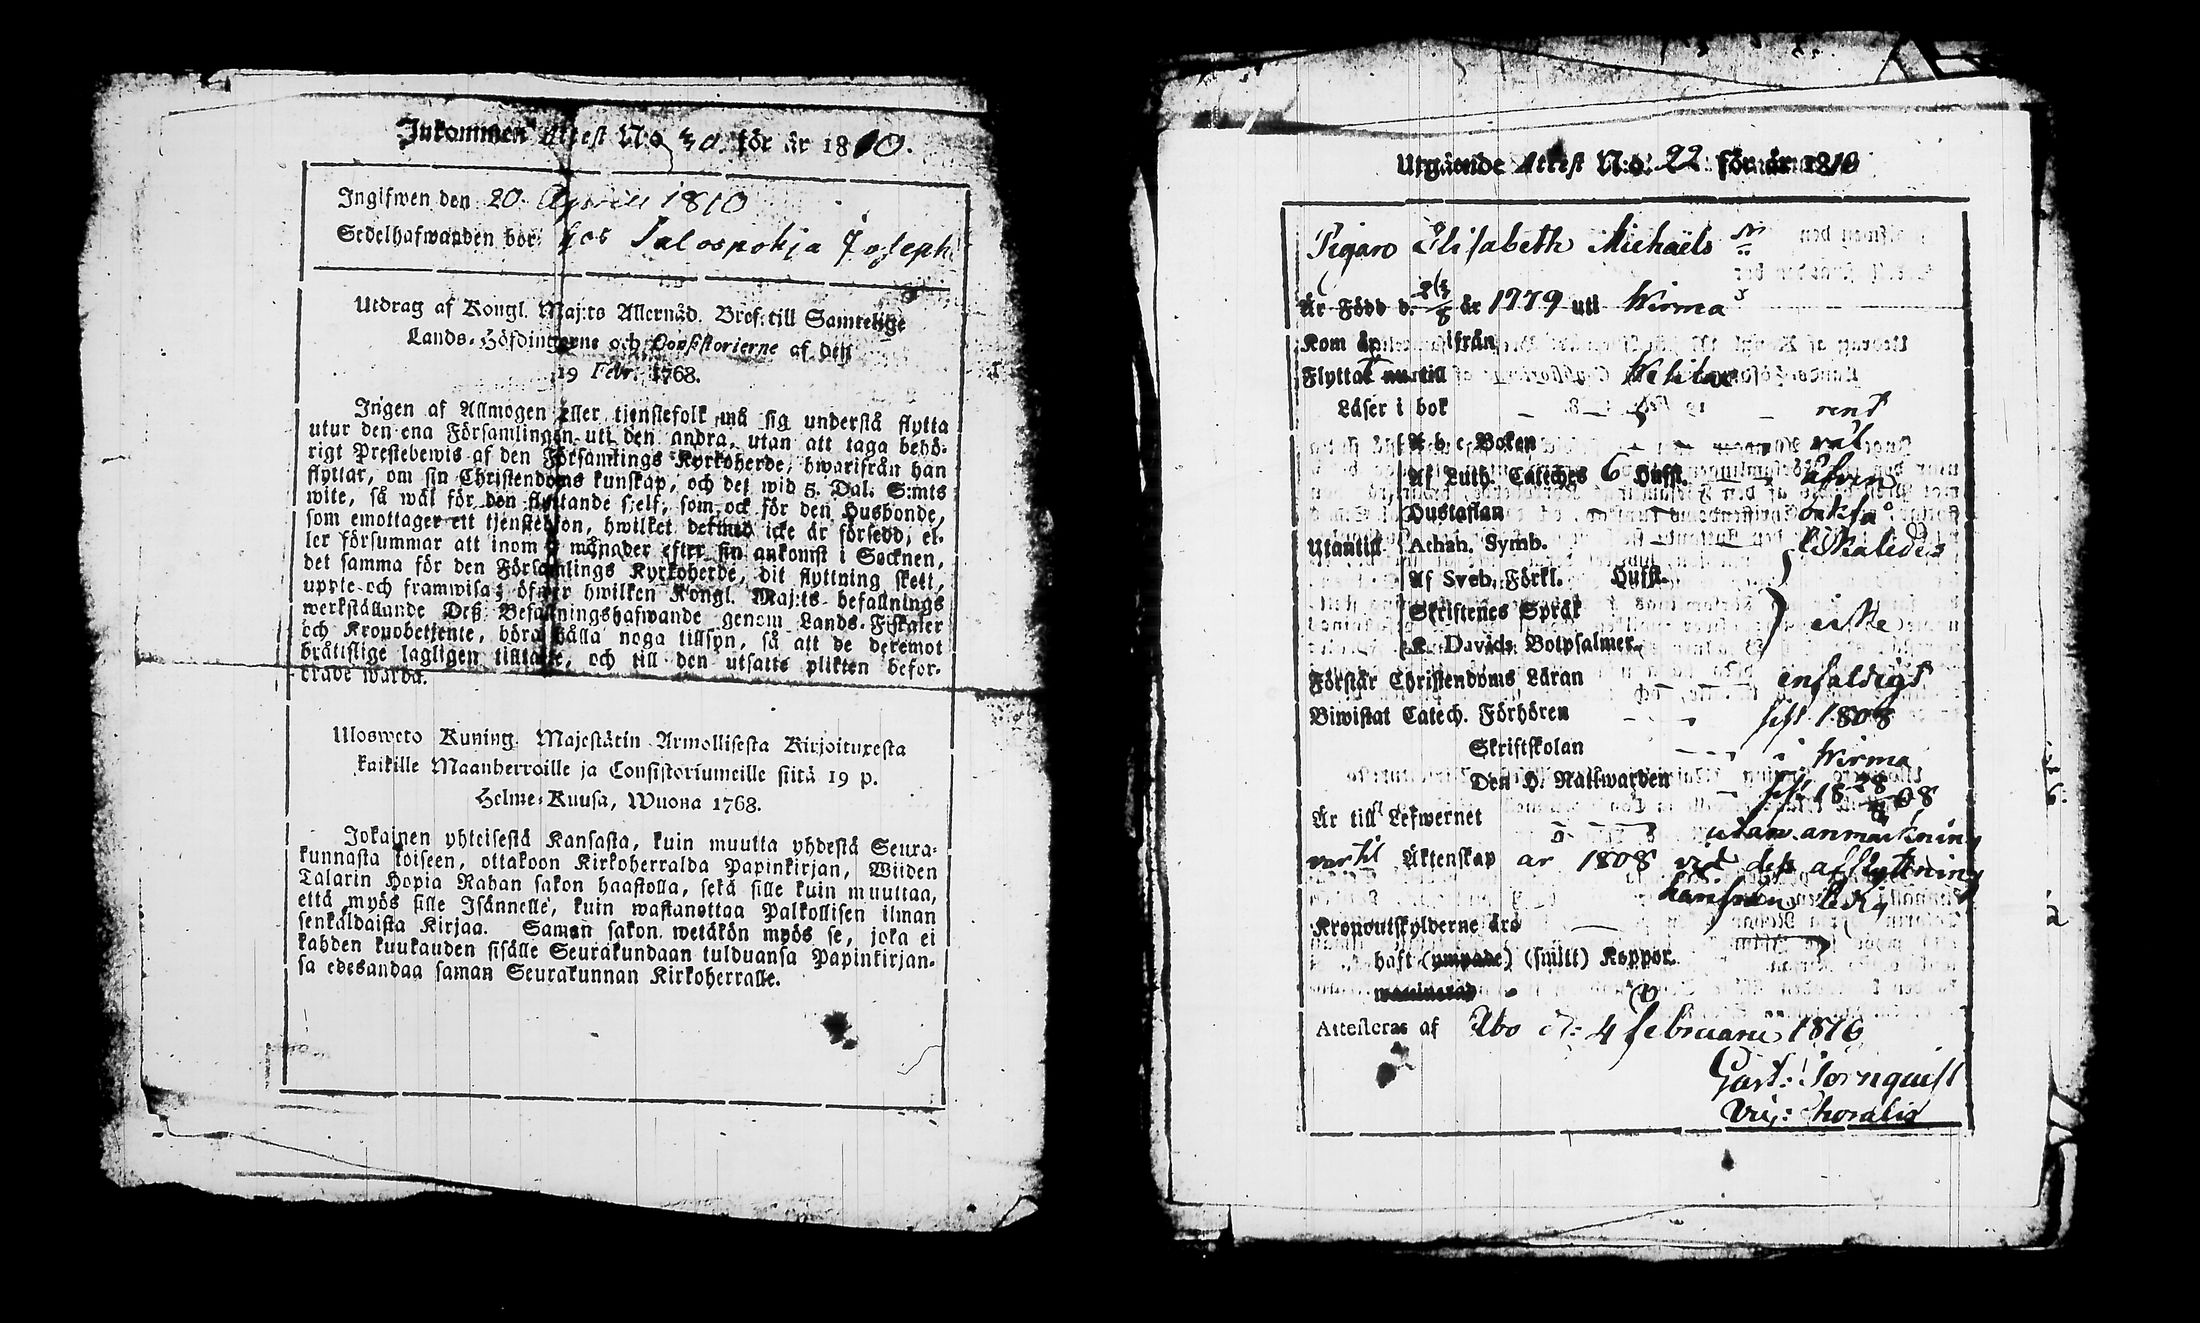 Inkommen Attest N:o 30. för år 1810.
Ingifwen den 20. Aprill 1810
Sedelhafwanden bor hos Salospohja Joseph
Utdrag af Kongl. Maj:ts Allernåd. Bref till Samtelige
Lands-Höfdingarne och Consistorierne af den
19 Febr. 1768.
Ingen af Allmogen eller tjenstefolk må sig understå flytta
utur den ena Församlingen uti den andra, utan att taga behö-
rigt Prestebewis af den Församlings Kyrkoherde, hwarifrån han
flyttar, om sin Christendoms kunskap, och det wid 5. Dal. S:mts
wite, så wäl för den flyttande sjelf, som ock för den Husbonde,
som emottager ett tjenstehjon, hwilket dermed icke är försedd, el-
ler försummar att inom månader efter sin ankomst i Socknen,
det samma för den Församlings Kyrkoherde, dit flyttning skett,
upple och framwisa; öfwer hwilken Kongl. Maj:ts befallnings
werkställande Deß Befallningshafwande genom Lands-Fiskaler
och Kronobetjente, böra hålla noga tillsyn, så att de deremot
bråttslige lagligen tilltalte, och till den utsatte plikten befor-
drade warda.
Ulosweto Kuning. Majestätin Armollisesta Kirjoituxesta
kaikille Maanherroille ja Consistoriumeille siitä 19 p.
Helme-Kuusa, Wuona 1768.
Jokainen yhteisestä Kansasta, kuin muutta yhdestä Seura-
kunnasta toiseen, ottakoon Kirkoherralda Papinkirjan, Wiiden
Talarin Hopia Rahan sakon haastolla, sekä sille kuin muuttaa,
että myös sille Isännelle, kuin wastanottaa Palkollisen ilman
senkaldaista Kirjaa. Saman sakon wetäkön myös se, joka ei
kahden kuukauden sisälle Seurakundaan tulduansa Papinkirjan-
sa edesandaa saman Seurakunnan Kirkoherralle.
Utgående Attest N:o: 22 för år 1810
Pigan Elisabeth Michaëls
Är Född d. år 1779 uti Wirmo
Kom ifrån
Flyttat till
Läser i bok rent
A. b. c. Boken wäl
Af Luth. Cateches 6 Hufst. äfven
Hustaflan också
Utantill Athan. Symb. likaledes
Af Sveb. Förkl. Hufst.
Skriftenes Språk icke
K. Davids Botpsalmer.
Förstår Christendoms Läran enfaldigt
Biwistat Catech. Förhören sist 1808
Skriftskolan i Wirmo
Den H. Nattwarden sist 18 08
Är till Lefwernet utan anmärkning
var til Äktenskap år 1808 vid deß afflyttning
härifrån ledig
Kronoutskylderne äro
haft (ympade) (smitt) Koppor.
Attesteras af Åbo d: 4 februarii 1810
Gust: Törnquist